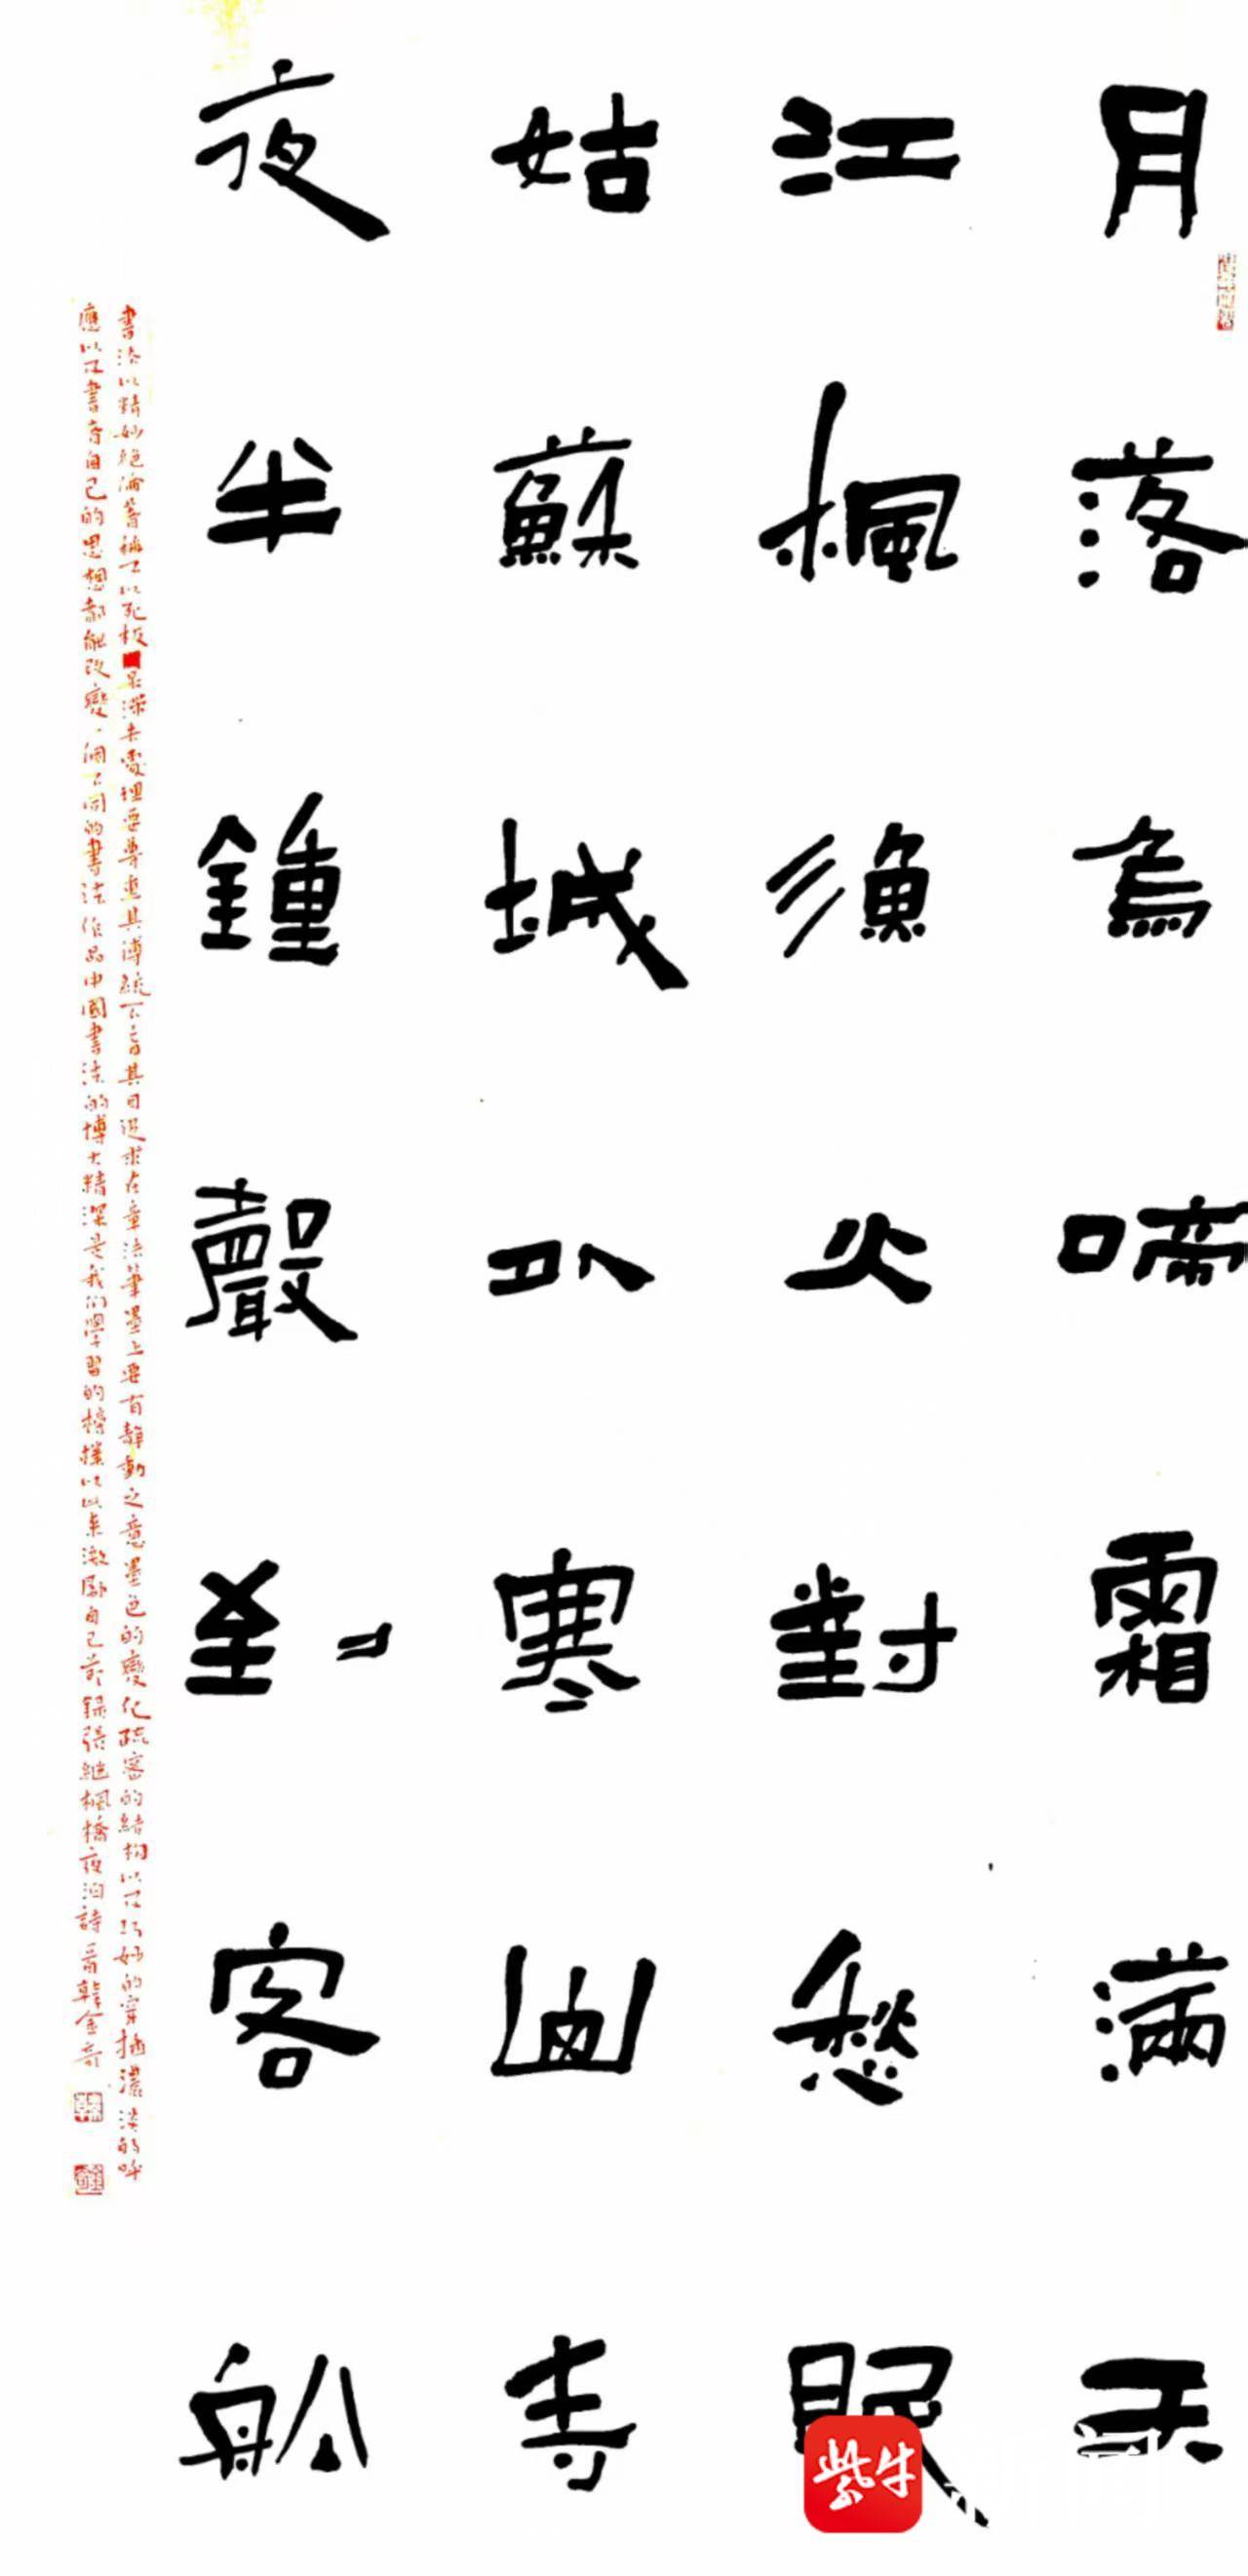 月落烏啼霜滿天
江楓漁火對愁眠
姑蘇城外寒山寺
夜半鍾聲到客舩
書法以精妙絕倫著稱不以死板見深去處理要尊重其傳統不盲其目追求在章法筆墨上要有靜動之意墨色的變化疏密的結構以及巧妙的穿插濃淡的呼
應以及書寫自己的思想都能改變一個不同的書法作品中國書法的博大精深是我們學習的榜樣以此來激勵自己節錄張繼楓橋夜泊詩一首韓金奇
紫牛